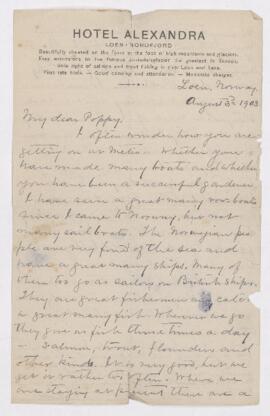 HOTEL ALEXANDRA
LOEN - NORDFJORD
Beautifully situated on the Fjord at the foot of high mountains and glaciers.
First rate table. — Good cooking and attendance. — Moderate charges.
Loen, Norway.
August 3rd 1903
My dear Poppy.
I often wonder how you are
getting on at Metis. Whether you
have made many boats and whether
you have been a successful gardener.
I have seen a great many row boats
since I came to Norway, but not
many sail boats. The Norwegian peo-
ple are very fond of the sea and
have a great many ships. Many of
them too go as sailors on British ships.
They are great fishermen and catch
a great many fish. Wherever we go
they give us fish three times a day
— Salmon, trout, flounders and
other kinds. It is very good, but we
get it rather too often. Where we
are staying at present there are a